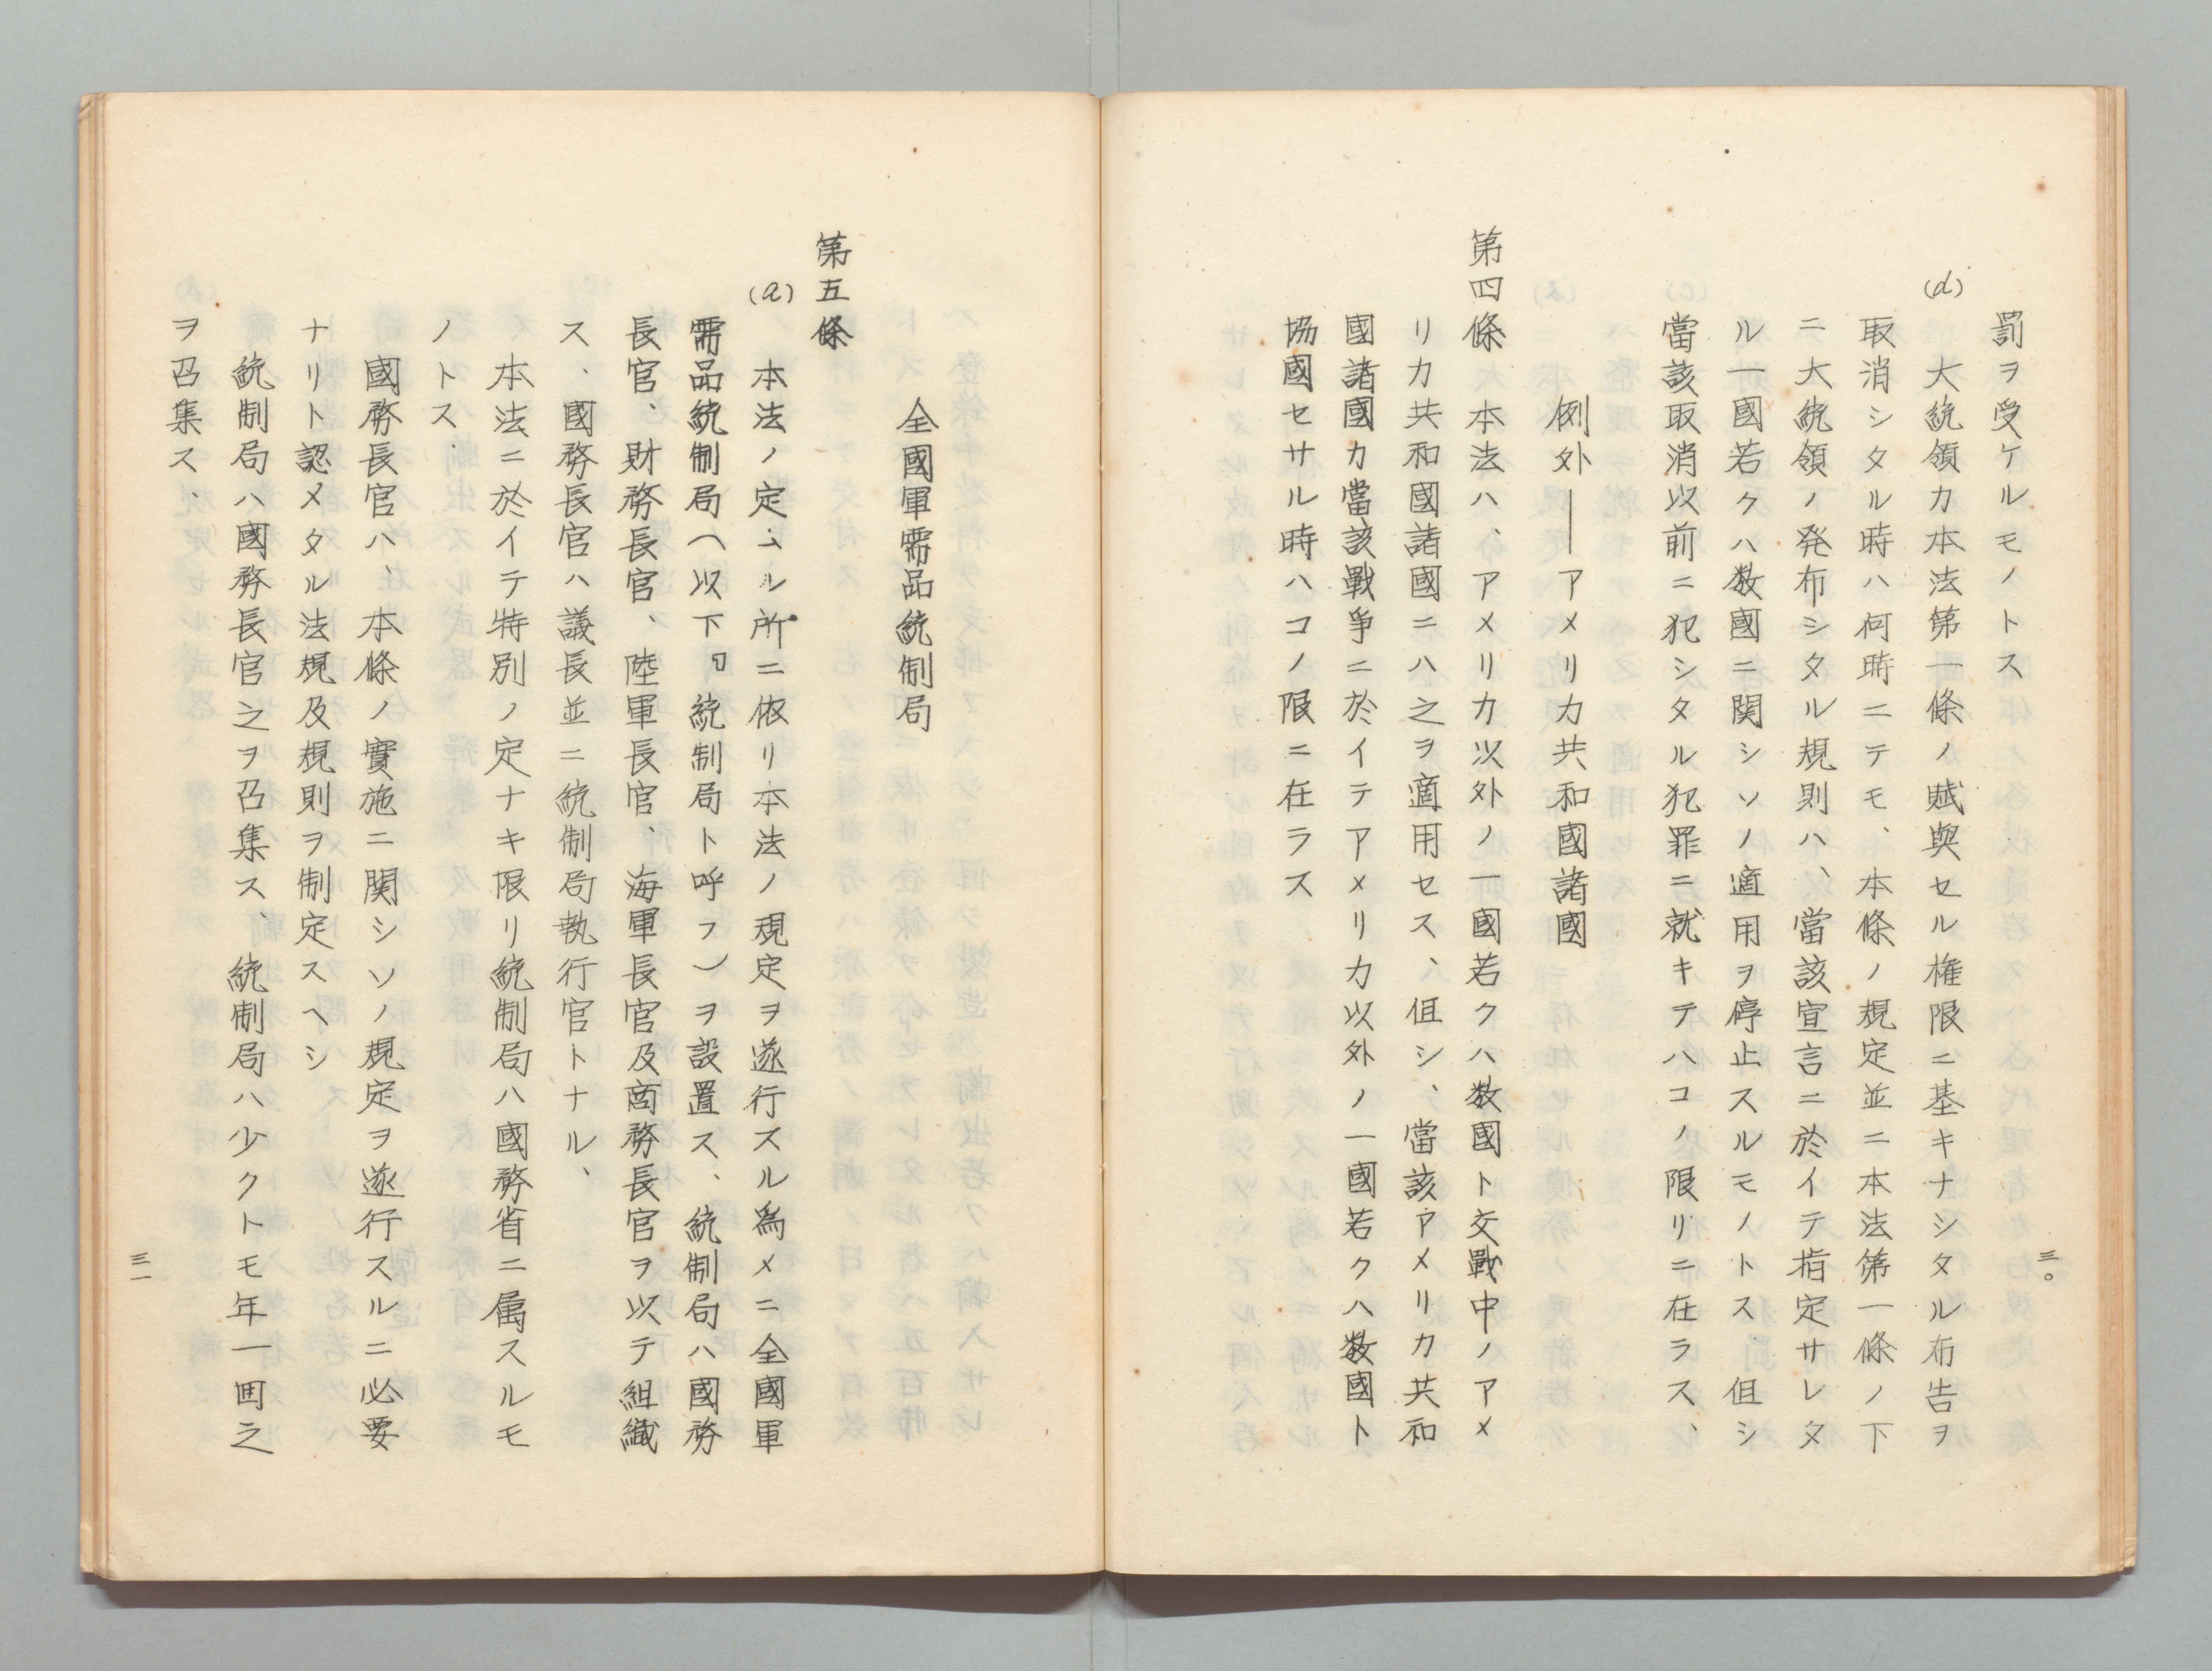 罰ヲ受ケルモノトス
(d)
大統領カ本法第一條ノ賦與セル権限ニ基キナシタル布告ヲ
取消シタル時ハ何時ニテモ、本條ノ規定並ニ本法第一條ノ下
ニ大統領ノ発布シタル規則ハ、當該宣言ニ於イテ指定サレタ
ル一國若クハ数國ニ関シソノ適用ヲ停止スルモノトス 但シ
當該取消以前ニ犯シタル犯罪ニ就キテハコノ限リニ在ラス、
例外――アメリカ共和國諸國
第四條 本法ハ、アメリカ以外ノ一國若クハ数國ト交戰中ノアメ
リカ共和國諸國ニハ之ヲ適用セス、但シ、當該アメリカ共和
國諸國カ當該戰爭ニ於イテアメリカ以外ノ一國若クハ数國ト
協國セサル時ハコノ限ニ在ラス
三〇
全國軍需品統制局
第五條
(a)
本法ノ定ムル所ニ依リ本法ノ規定ヲ遂行スル為メニ全國軍
需品統制局(以下『統制局ト呼フ)ヲ設置ス、統制局ハ國務
長官、財務長官、陸軍長官、海軍長官及商務長官ヲ以テ組織
ス、國務長官ハ議長並ニ統制局執行官トナル、
本法ニ於イテ特別ノ定ナキ限リ統制局ハ國務省ニ属スルモ
ノトス.
國務長官ハ、本條ノ實施ニ関シソノ規定ヲ遂行スルニ必要
ナリト認メタル法規及規則ヲ制定スヘシ
統制局ハ國務長官之ヲ召集ス、統制局ハ少クトモ年一囬之
ヲ召集ス、
三一